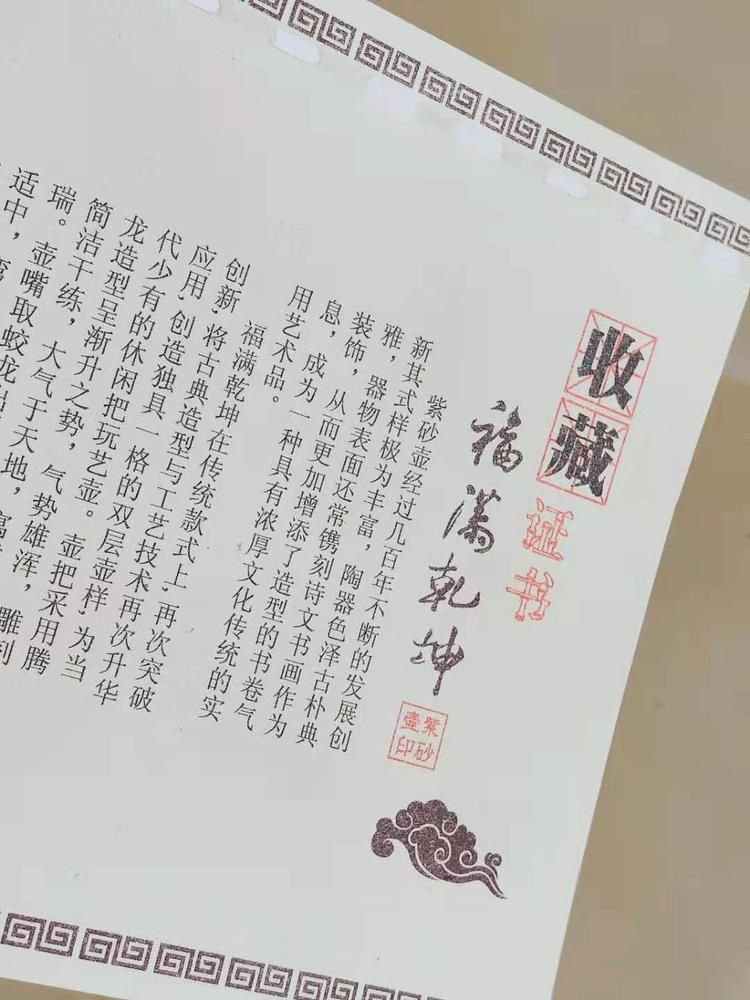 收藏证书
福满乾坤
紫砂壶印
紫砂壶经过几百年不断的发展创
新其式样极为丰富，陶器色泽古朴典
雅，器物表面还常镌刻诗文书画作为
装饰，从而更加增添了造型的书卷气
息，成为一种具有浓厚文化传统的实
用艺术品。
福满乾坤在传统款式上,再次突破
创新,将古典造型与工艺技术再次升华
应用,创造独具一格的双层壶样,为当
代少有的休闲把玩艺壶。壶把采用腾
龙造型呈渐升之势，气势雄浑，雕刻
简洁干练，大气于天地，富
瑞。壶嘴取蛟龙出
适中，弯